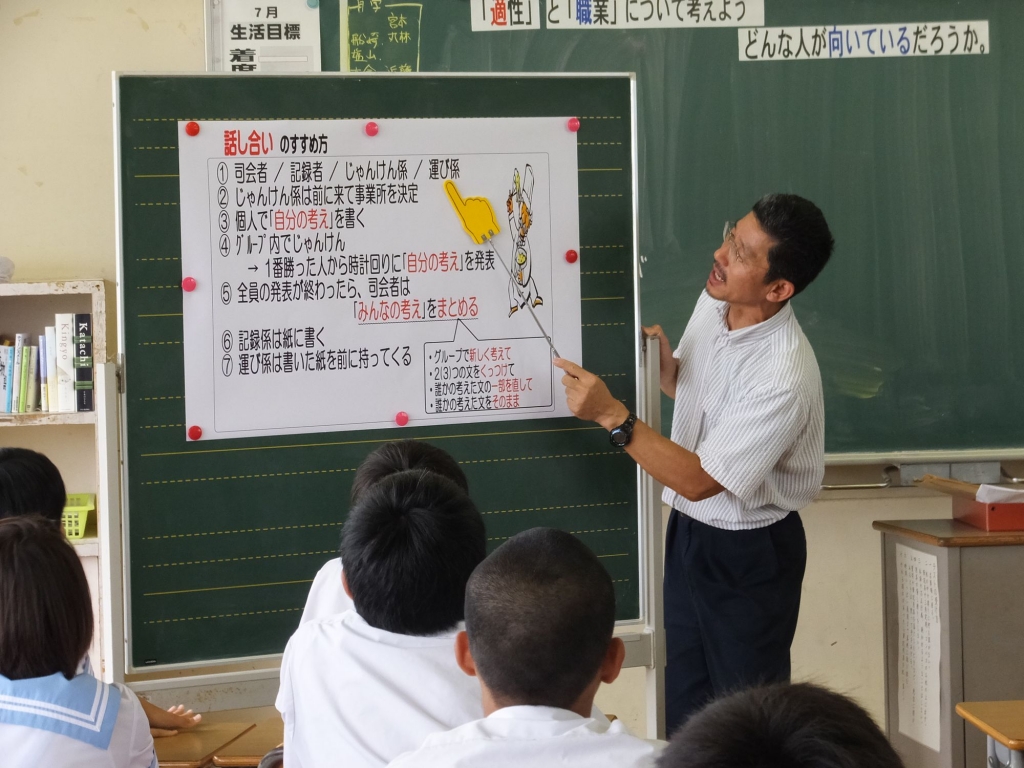 7月
生活目標
着席
宮本
船崎、
塩山、
「適性」と「職業」について考えよう
どんな人が向いているだろうか。
話し合い のすすめ方
① 司会者 / 記録者 / じゃんけん係 / 運び係
② じゃんけん係は前に来て事業所を決定
③ 個人で「自分の考え」を書く
④ グループ内でじゃんけん
→ 1番勝った人から時計回りに「自分の考え」を発表
⑤ 全員の発表が終わったら、司会者は
「みんなの考え」をまとめる
⑥ 記録係は紙に書く
⑦ 運び係は書いた紙を前に持ってくる
・グループで新しく考えて
・2(3)つの文をくっつけて
・誰かの考えた文の一部を直して
・誰かの考えた文をそのまま
Kingyo
Katachi